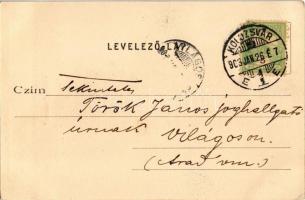 LEVELEZŐ-LAP
KOLOZSVÁR
903 JAN. 28 E. 7
1
Czim
Tekintetes
Török János joghallgató
úrnak
Világoson.
(Arad vm.)